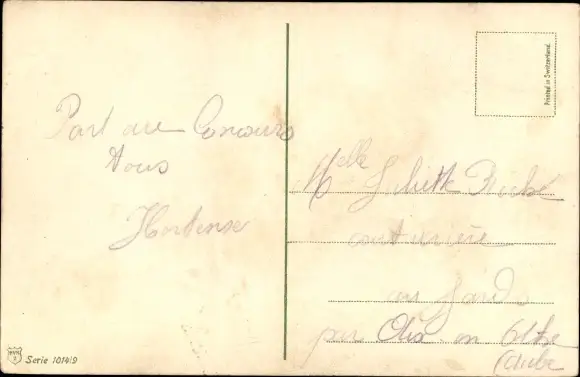 Part au Concours
Vous
Hortense
Printed in Switzerland.
Melle Juliette
couturière
au Jard
par Aix en Othe
(Aube
Serie 10149